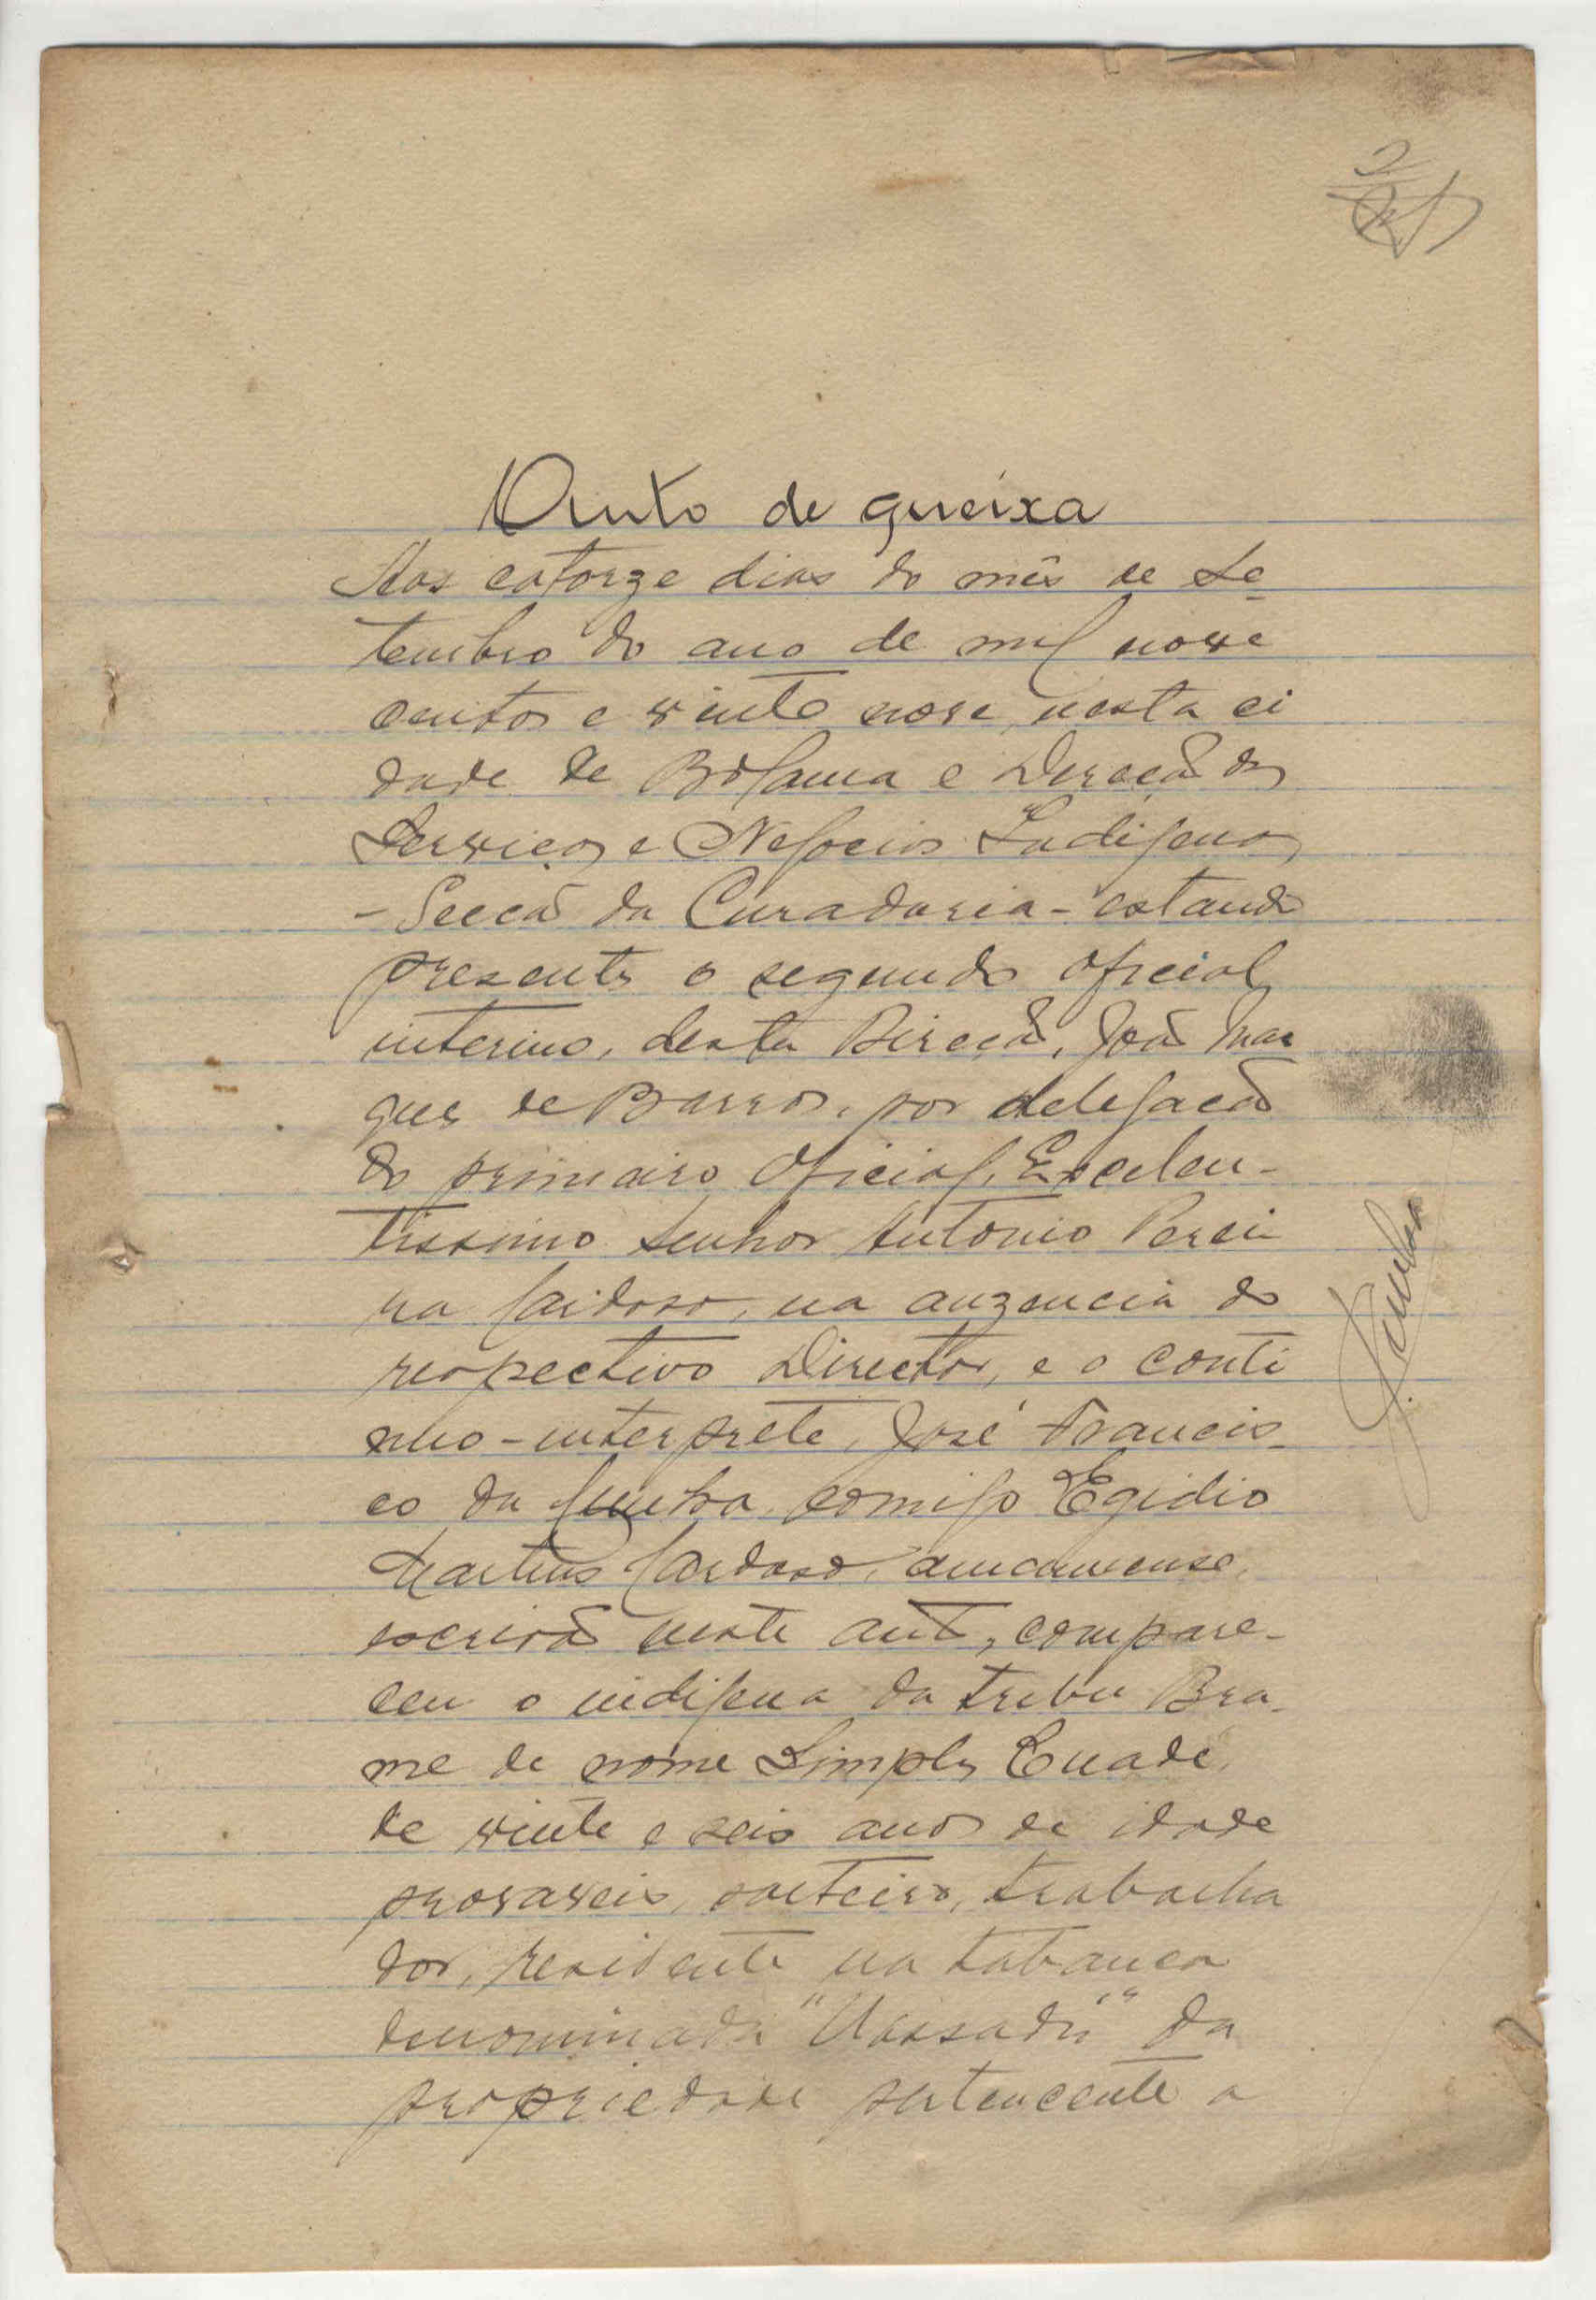 2
Auto de queixa
Aos catorze dias do mês de Se
tembro do ano de mil nove
centos e vinte nove, nesta ci
dade de Bolama e Direcção dos
Serviços e Negocios Indigenas
- Secção da Curadoria - estando
presente o segundo oficial,
interino, desta Direcção, João Mar
ques de Barros, por delegação
do primeiro oficial, Excelen-
tissimo Senhor Antonio Perei
ra Cardoso, na auzencia do
respectivo Director, e o conti
nuo-interprete, José Francis-
co da Cunha, comigo Egidio
Martins Cardoso, amanuense,
escrivão neste auto, compare-
ceu o indigena da tribu Bra-
me de nome Simples Cuade,
de vinte e seis anos de idade
provaveis, solteiro, trabalha
dor, residente na tabanca
denominada "Uassadú" da
propriedade pertencente a
J. Cunha